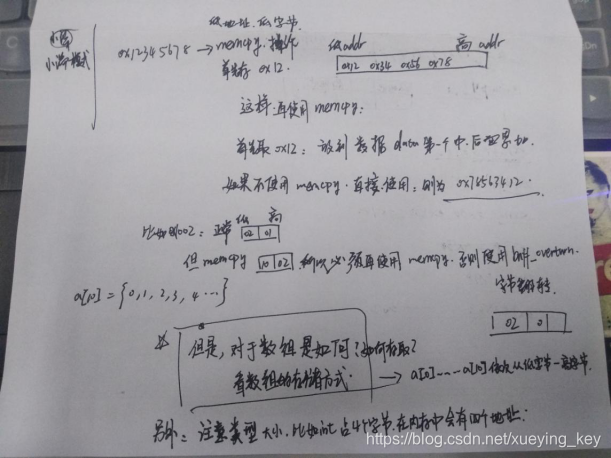 低地址. 低字节.
小端模式
0x12345678 → memcpy. 操作
低addr 高 addr
首先存 0x12.
0x12 0x34 0x56 0x78
这样.再使用 memcpy:
首先取 0x12: 放到 数据 data 第一个中.后
如果不使用 memcpy. 直接使用: 则为 0x78563412.
比如 0102: 正常 低 高
02 01
但 memcpy 10 02 所以必须再使用 memcpy. 否则使用
a[10] = {0, 1, 2, 3, 4 ...}
字节
02 01
但是, 对于数组是如何? 如何存取?
看数组的存储方式.
→ a[0] ---- a[10] 依次从低字节-高字节.
另外: 注意类型大小. 比如int占4个字节. 在内存中会有四个地址.
https://blog.csdn.net/xueying_key